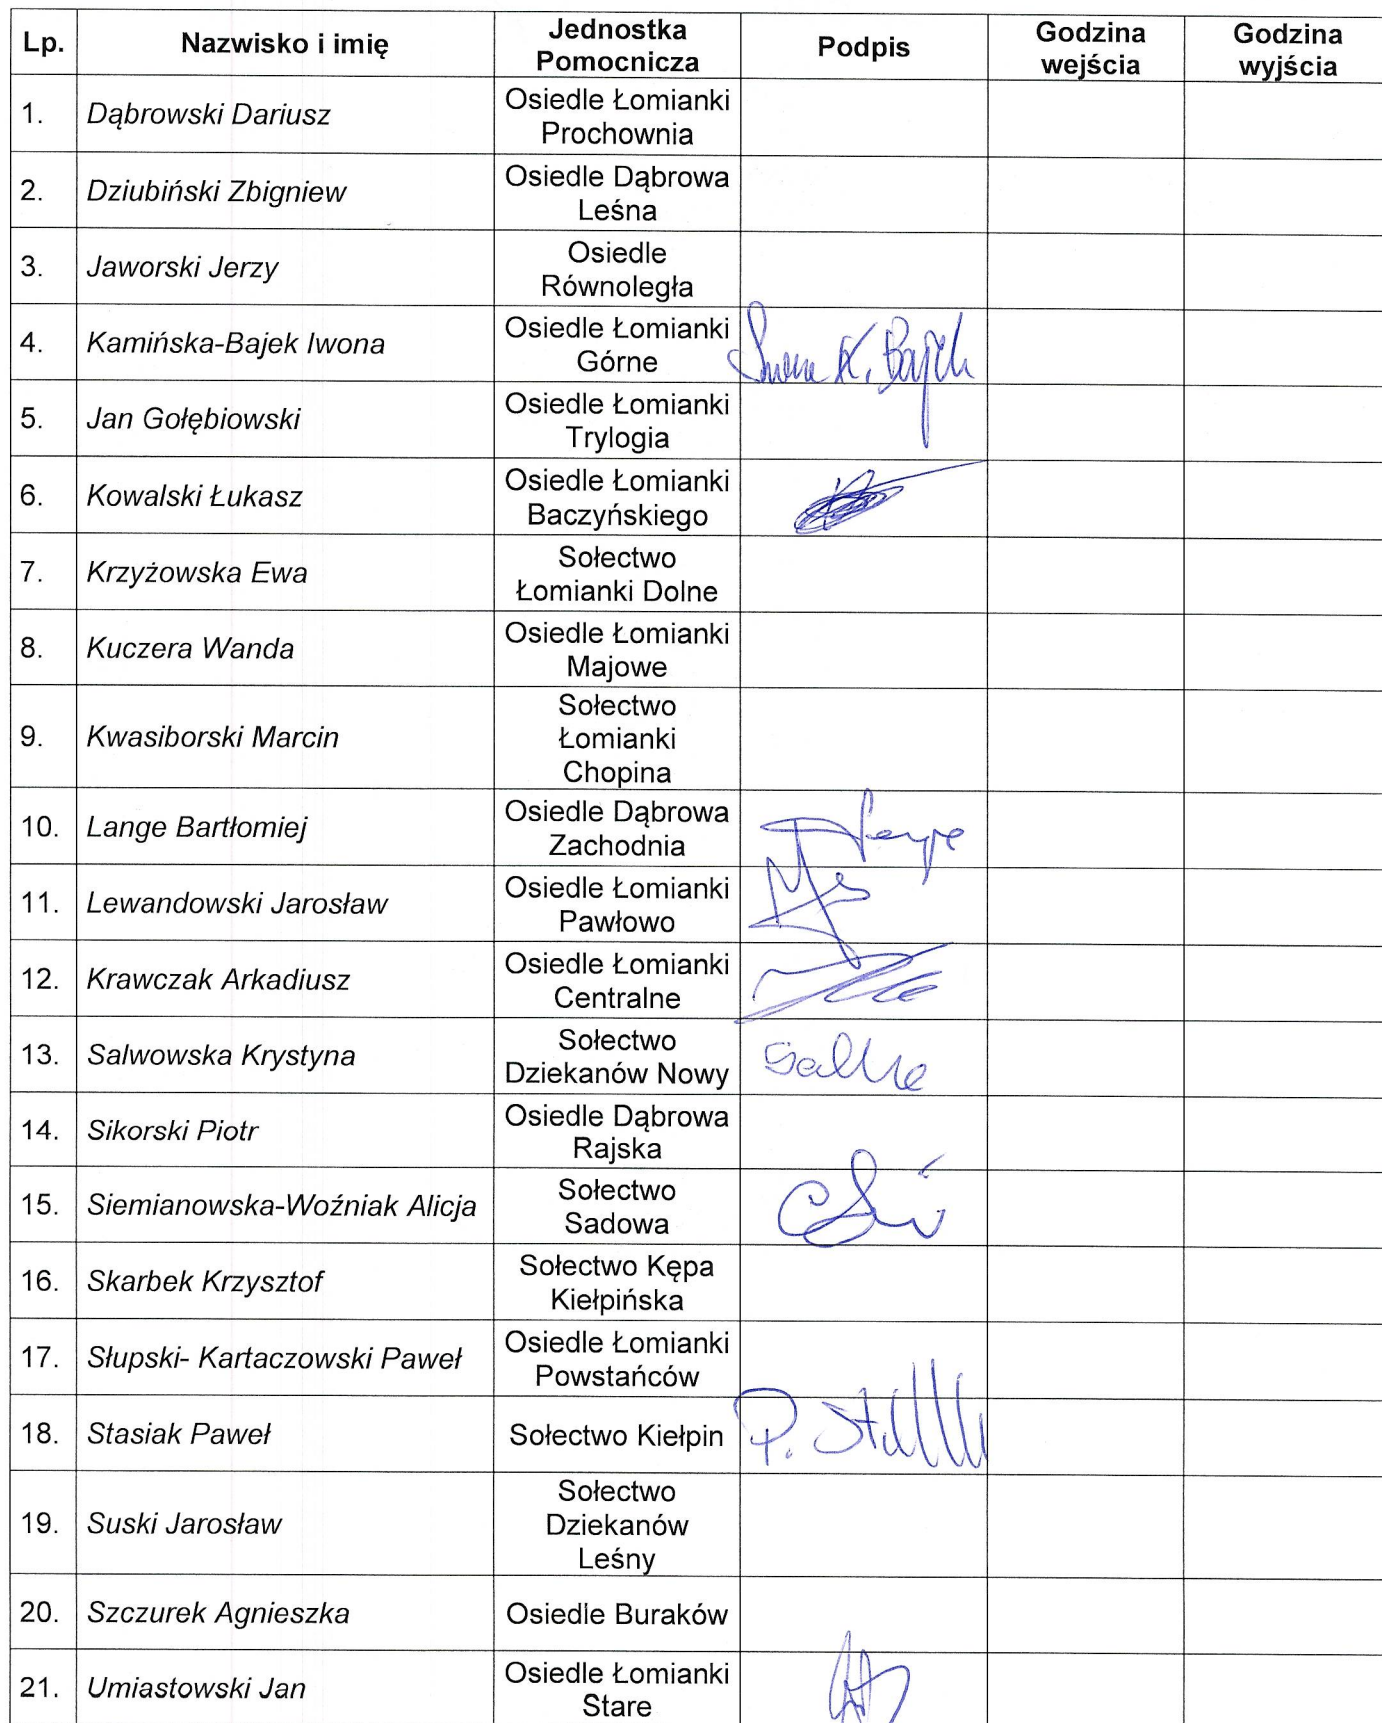 Lp. Nazwisko i imię Jednostka Pomocnicza Podpis Godzina wejścia Godzina wyjścia
1. Dąbrowski Dariusz Osiedle Łomianki Prochownia
2. Dziubiński Zbigniew Osiedle Dąbrowa Leśna
3. Jaworski Jerzy Osiedle Równoległa
4. Kamińska-Bajek Iwona Osiedle Łomianki Górne Iwona K. Bajek
5. Jan Gołębiowski Osiedle Łomianki Trylogia
6. Kowalski Łukasz Osiedle Łomianki Baczyńskiego
7. Krzyżowska Ewa Sołectwo Łomianki Dolne
8. Kuczera Wanda Osiedle Łomianki Majowe
9. Kwasiborski Marcin Sołectwo Łomianki Chopina
10. Lange Bartłomiej Osiedle Dąbrowa Zachodnia
11. Lewandowski Jarosław Osiedle Łomianki Pawłowo
12. Krawczak Arkadiusz Osiedle Łomianki Centralne
13. Salwowska Krystyna Sołectwo Dziekanów Nowy
14. Sikorski Piotr Osiedle Dąbrowa Rajska
15. Siemianowska-Woźniak Alicja Sołectwo Sadowa
16. Skarbek Krzysztof Sołectwo Kępa Kiełpińska
17. Słupski- Kartaczowski Paweł Osiedle Łomianki Powstańców
18. Stasiak Paweł Sołectwo Kiełpin P.
19. Suski Jarosław Sołectwo Dziekanów Leśny
20. Szczurek Agnieszka Osiedle Buraków
21. Umiastowski Jan Osiedle Łomianki Stare